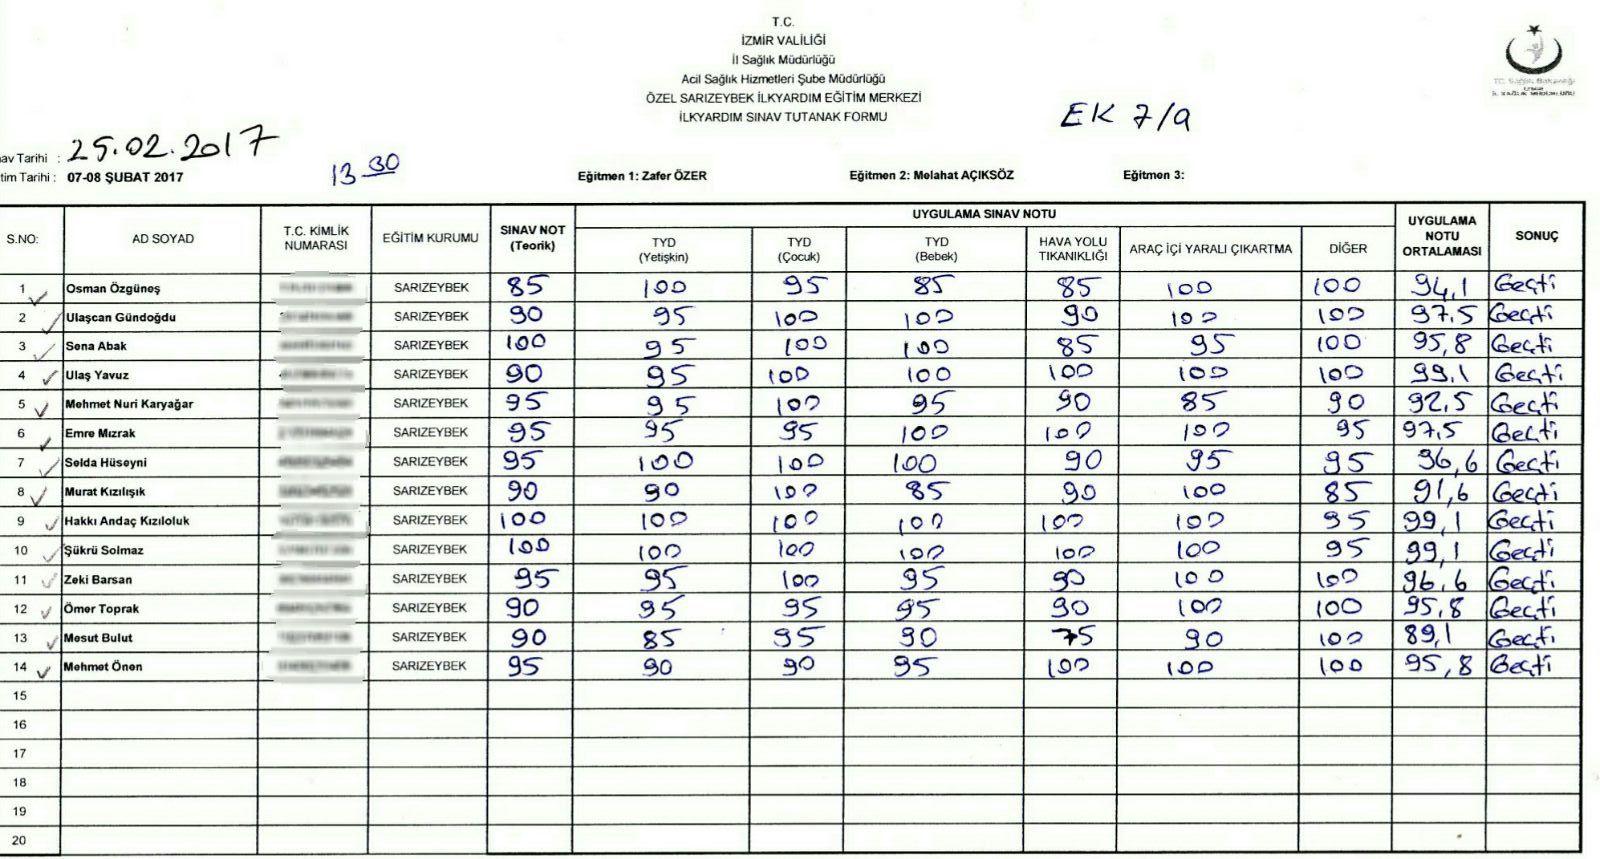 T.C.
İZMİR VALİLİĞİ
İl Sağlık Müdürlüğü
Acil Sağlık Hizmetleri Şube Müdürlüğü
ÖZEL SARIZEYBEK İLKYARDIM EĞİTİM MERKEZİ
İLKYARDIM SINAV TUTANAK FORMU
EK 7/a
nav Tarihi : 25.02.2017
tim Tarihi : 07-08 ŞUBAT 2017 13 30 Eğitmen 1: Zafer ÖZER Eğitmen 2: Melahat AÇIKSÖZ Eğitmen 3:
S.NO: AD SOYAD T.C. KİMLİK NUMARASI EĞİTİM KURUMU SINAV NOT (Teorik) UYGULAMA SINAV NOTU UYGULAMA NOTU ORTALAMASI SONUÇ
TYD (Yetişkin) TYD (Çocuk) TYD (Bebek) HAVA YOLU TIKANIKLIĞI ARAÇ İÇİ YARALI ÇIKARTMA DİĞER
1 Osman Özgüneş SARIZEYBEK 85 100 95 85 85 100 100 94,1 Geçti
2 Ulaşcan Gündoğdu SARIZEYBEK 90 95 100 100 90 100 100 97,5 Geçti
3 Sena Abak SARIZEYBEK 100 95 100 100 85 95 100 95,8 Geçti
4 Ulaş Yavuz SARIZEYBEK 90 95 100 100 100 100 100 99,1 Geçti
5 Mehmet Nuri Karyağar SARIZEYBEK 95 95 100 95 90 85 90 92,5 Geçti
6 Emre Mızrak SARIZEYBEK 95 95 95 100 100 100 95 97,5 Geçti
7 Selda Hüseyni SARIZEYBEK 95 100 100 100 90 95 95 96,6 Geçti
8 Murat Kızılışık SARIZEYBEK 90 90 100 85 90 100 85 91,6 Geçti
9 Hakkı Andaç Kızıloluk SARIZEYBEK 100 100 100 100 100 100 95 99,1 Geçti
10 Şükrü Solmaz SARIZEYBEK 100 100 100 100 100 100 95 99,1 Geçti
11 Zeki Barsan SARIZEYBEK 95 95 100 95 90 100 100 96,6 Geçti
12 Ömer Toprak SARIZEYBEK 90 95 95 95 90 100 100 95,8 Geçti
13 Mesut Bulut SARIZEYBEK 90 85 95 90 75 90 100 89,1 Geçti
14 Mehmet Önen SARIZEYBEK 95 90 90 95 100 100 100 95,8 Geçti
15
16
17
18
19
20